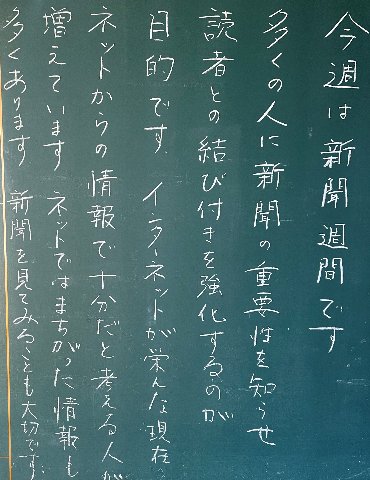 今週は新聞週間です
多くの人に新聞の重要性を知らせ
読者との結び付きを強化するのが
目的です インターネットが栄んな現在
ネットからの情報で十分だと考える人が
増えています ネットではまちがった情報も
多くあります 新聞を見てみることも大切です